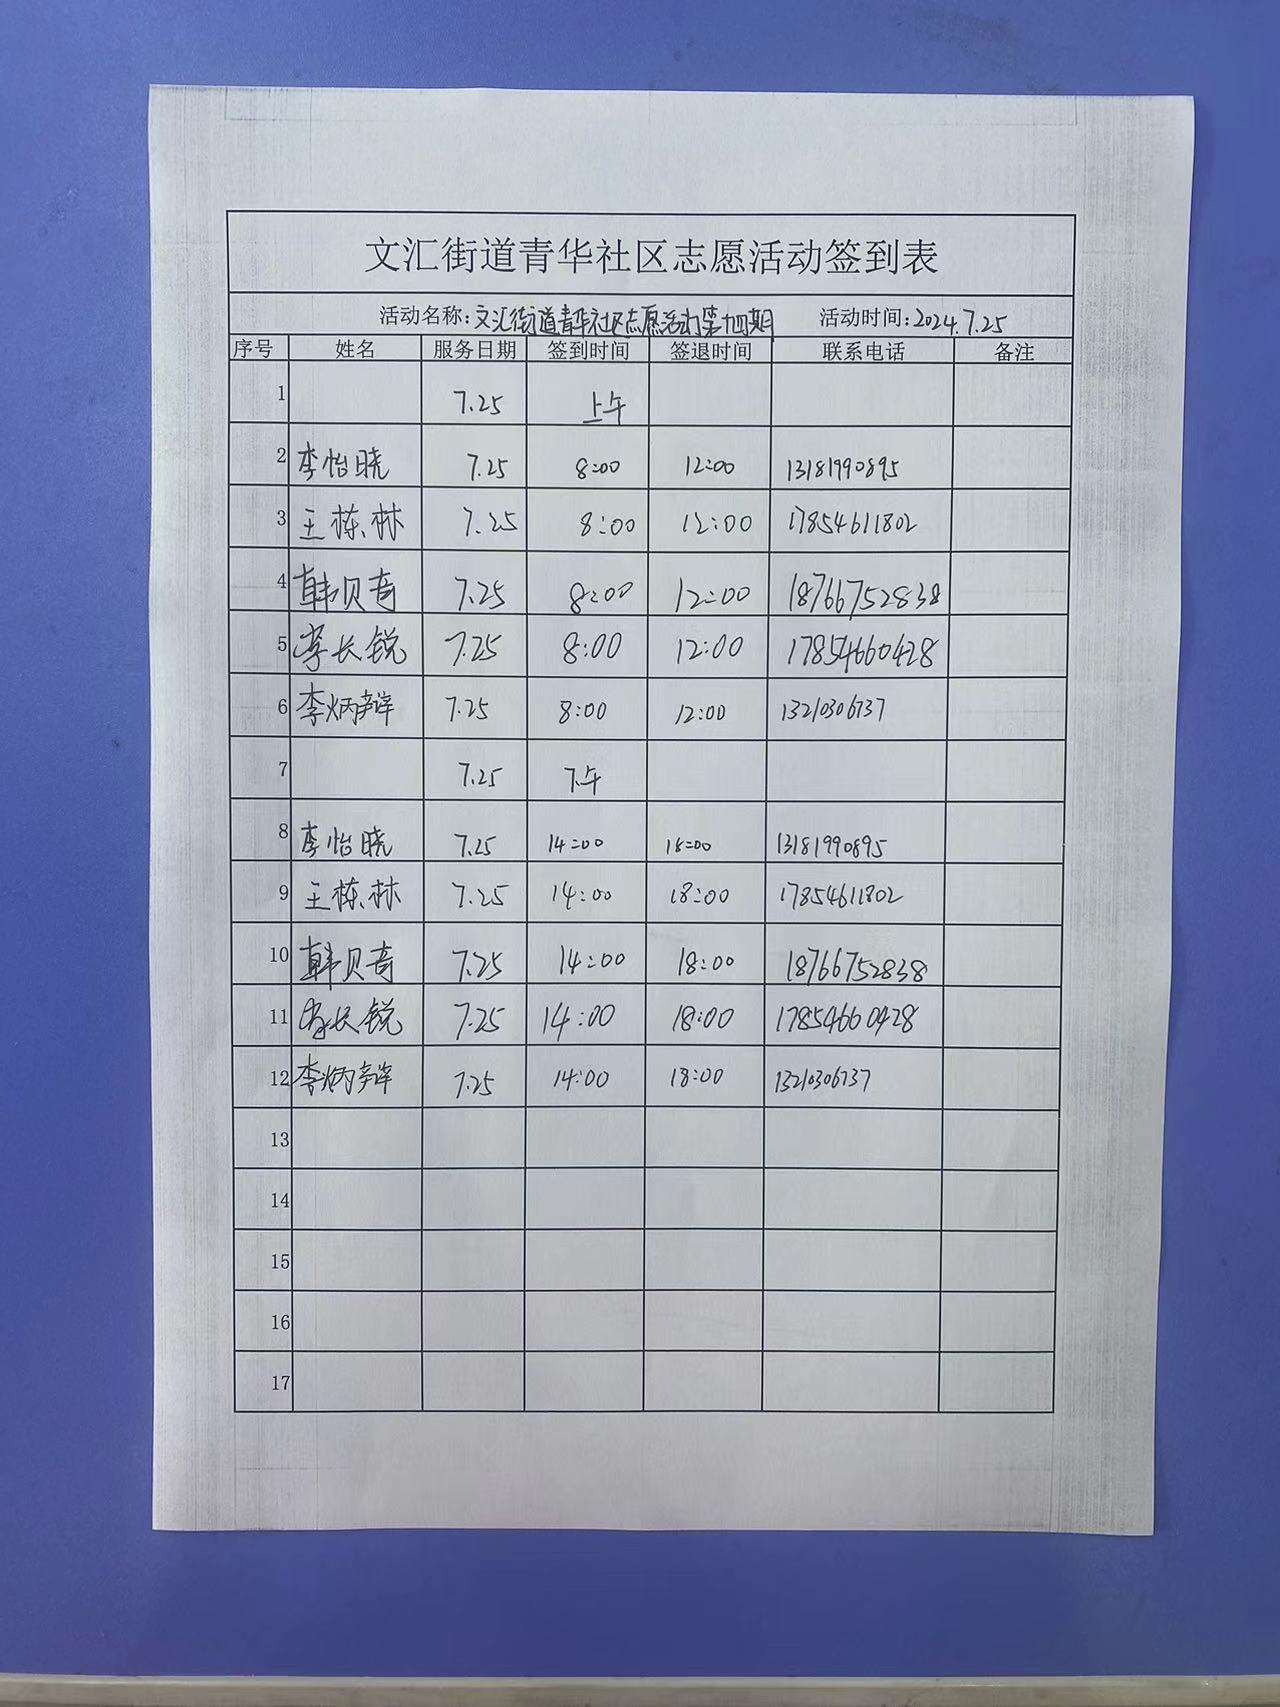 文汇街道青华社区志愿活动签到表
活动名称:文汇街道青华社区志愿活动第十四期 活动时间:2024.7.25
序号 姓名 服务日期 签到时间 签退时间 联系电话 备注
1 7.25 上午
2 李怡晓 7.25 8:00 12:00 13181990895
3 王栋林 7.25 8:00 12:00 17854611802
4 韩贝奇 7.25 8:00 12:00 18766752838
5 李长锐 7.25 8:00 12:00 17854660428
6 李炳 7.25 8:00 12:00 13210306737
7 7.25 下午
8 李怡晓 7.25 14:00 18:00 13181990895
9 王栋林 7.25 14:00 18:00 17854611802
10 韩贝奇 7.25 14:00 18:00 18766752838
11 李长锐 7.25 14:00 18:00 17854660428
12 李炳 7.25 14:00 18:00 13210306737
13
14
15
16
17